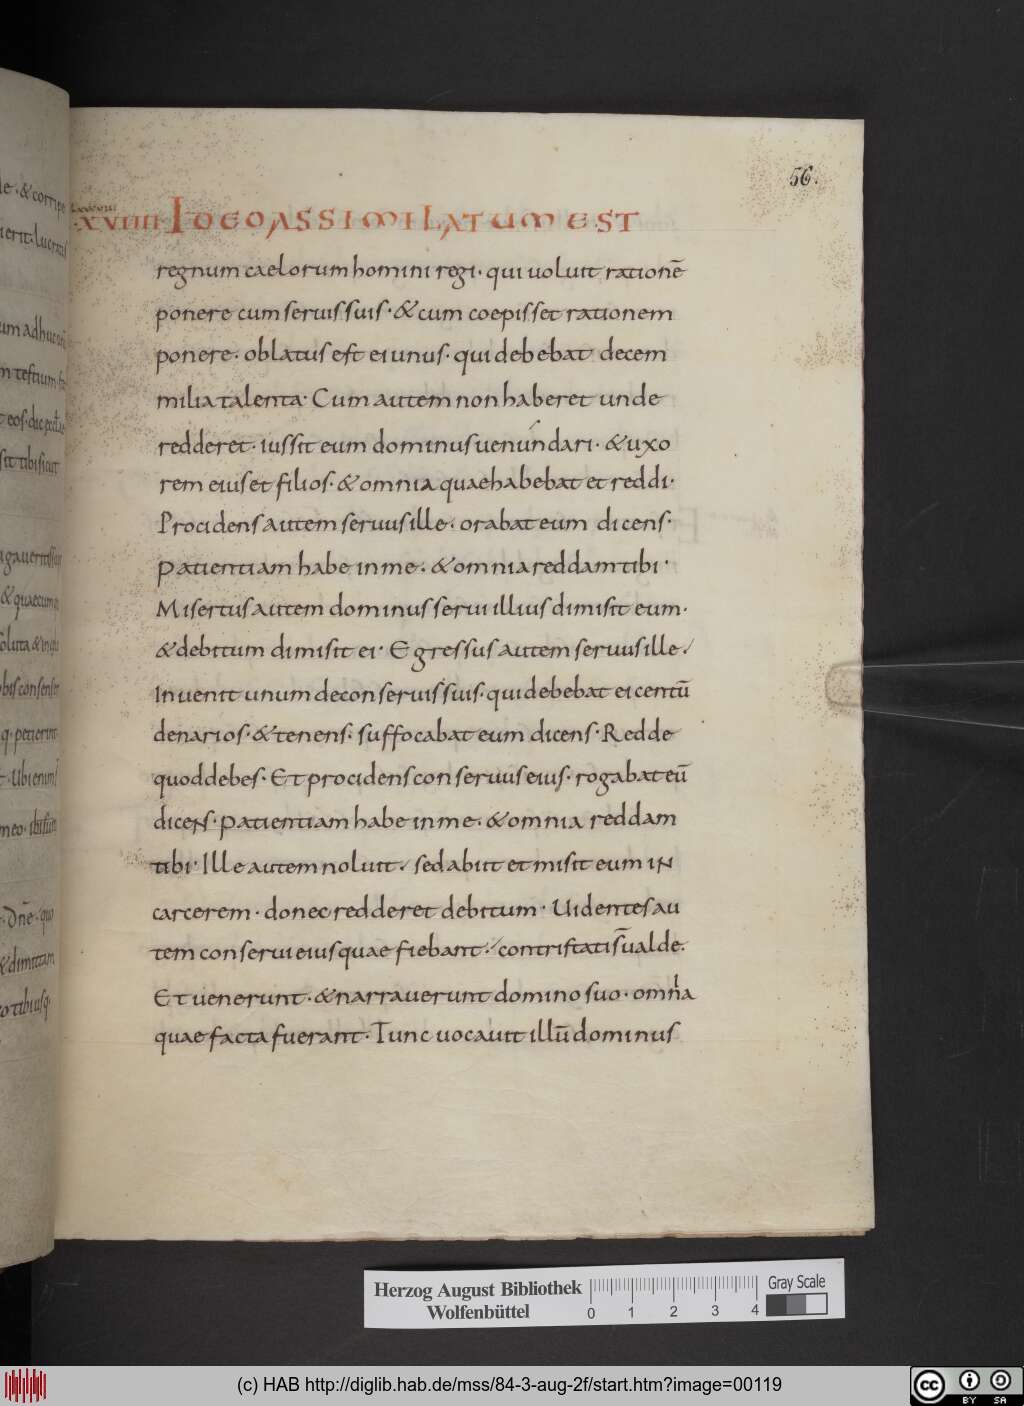 56.
XVIIII IDEO ASSIMILATUM EST
regnum caelorum homini regi· qui uoluit rationē
ponere cum seruis suis· & cum coepisset rationem
ponere· oblatus est ei unus· qui debebat decem
milia talenta· Cum autem non haberet unde
redderet· iussit eum dominus uenundari· & uxo
rem eius et filios· & omnia quae habebat et reddi·
Procidens autem seruus ille· orabat eum dicens·
Patientiam habe in me· & omnia reddam tibi·
Misertus autem dominus serui illius dimisit eum·
& debitum dimisit ei· Egressus autem seruus ille·
Inuenit unum de conseruis suis· qui debebat ei centū
denarios· & tenens· suffocabat eum dicens· Redde
quod debes· Et procidens conseruus eius· rogabat eū
dicens· Patientiam habe in me· & omnia reddam
tibi· Ille autem noluit· sed abiit et misit eum in
carcerem· donec redderet debitum· Uidentes au
tem conserui eius quae fiebant· contristati sū ualde·
Et uenerunt· & narrauerunt domino suo· omnia
quae facta fuerant· Tunc uocauit illū dominus
Herzog August Bibliothek
Wolfenbüttel
0 1 2 3 4
Gray Scale
(c) HAB http://diglib.hab.de/mss/84-3-aug-2f/start.htm?image=00119
cc BY SA